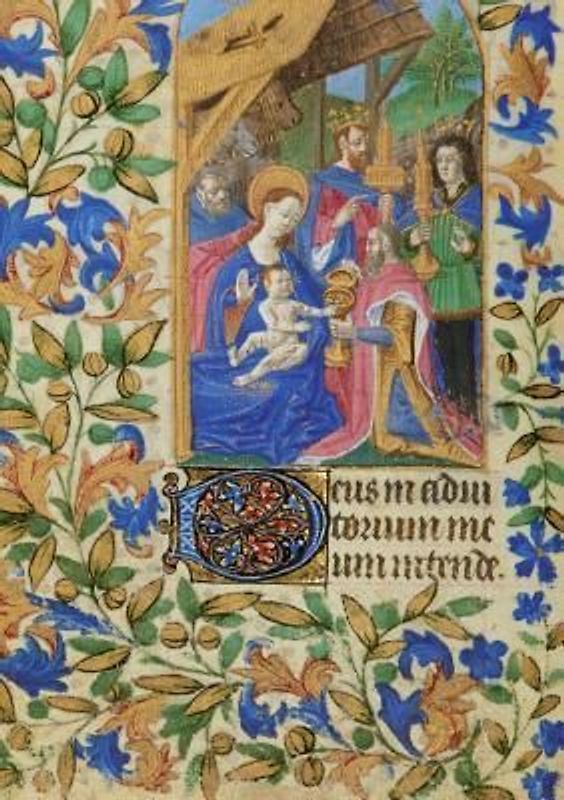 Deus in adiu
torium me
um intende.